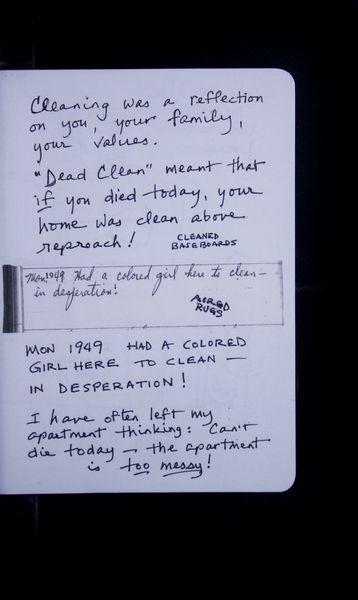 Cleaning was a reflection
on you, your family,
your values.
"Dead Clean" meant that
if you died today, your
home was clean above
reproach!
CLEANED
BASEBOARDS
Mon. 1949 Had a colored girl here to clean—
in desperation!
AIRED
RUGS
MON 1949 HAD A COLORED
GIRL HERE TO CLEAN —
IN DESPERATION!
I have often left my
apartment thinking: Can't
die today — the apartment
is too messy!